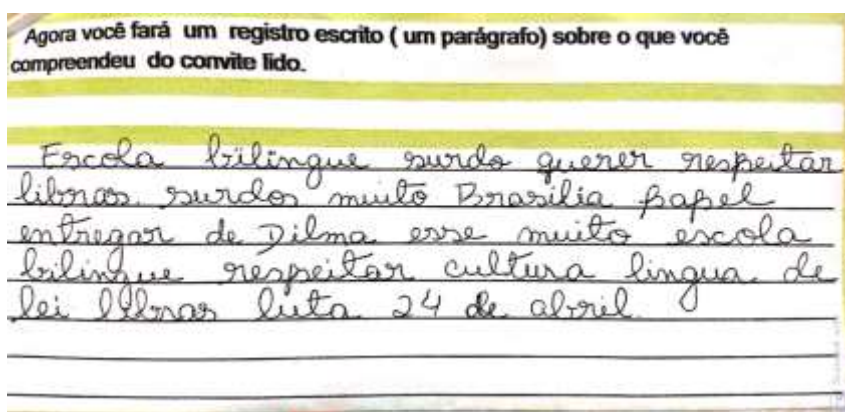 Agora você fará um registro escrito ( um parágrafo) sobre o que você
compreendeu do convite lido.
Escola bilingue surdo querer respeitar
libras. surdos muito Brasília papel
entregar de Dilma esse muito escola
bilingue respeitar cultura lingua de
lei libras luta 24 de abril.